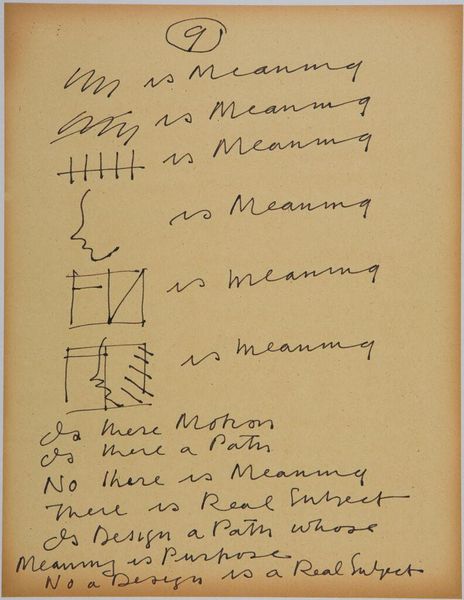 9
is Meaning
is Meaning
is Meaning
is Meaning
is Meaning
is Meaning
Is there Motion
Is there a Path
No there is Meaning
There is Real Subject
Is Design a Path whose
Meaning is Purpose
No a Design is a Real Subject